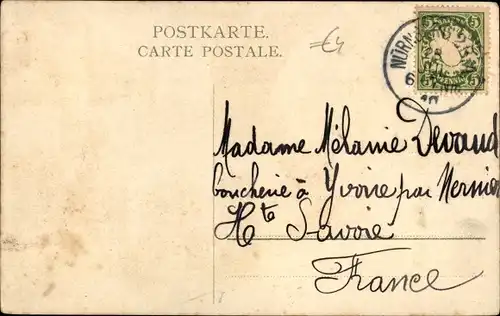 POSTKARTE.
CARTE POSTALE.
=€4
NÜRN
5 5
5 5
Madame Mélanie Devaud
boucherie à Yvoire par Nernier
Hte Savoie
France